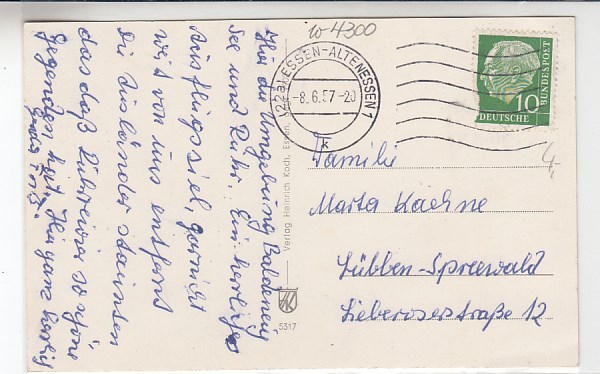 w-4300
Hier die Umgebung Baldeney
See und Ruhr. Ein herrliches
Ausflugsziel, garnicht
weit von uns entfernt
Die Ausländer staunen
das daß Ruhrrevier so schöne
Gegenden hat. Ihr ganz
(22a) ESSEN-ALTENESSEN 1
-8.6.57-20
k
DEUTSCHE
BUNDESPOST
10
4,
Familie
Marta Kaehne
Lübben-Spreewald
Lieberoserstraße 12
Verlag Heinrich Koch, Essen,
5317